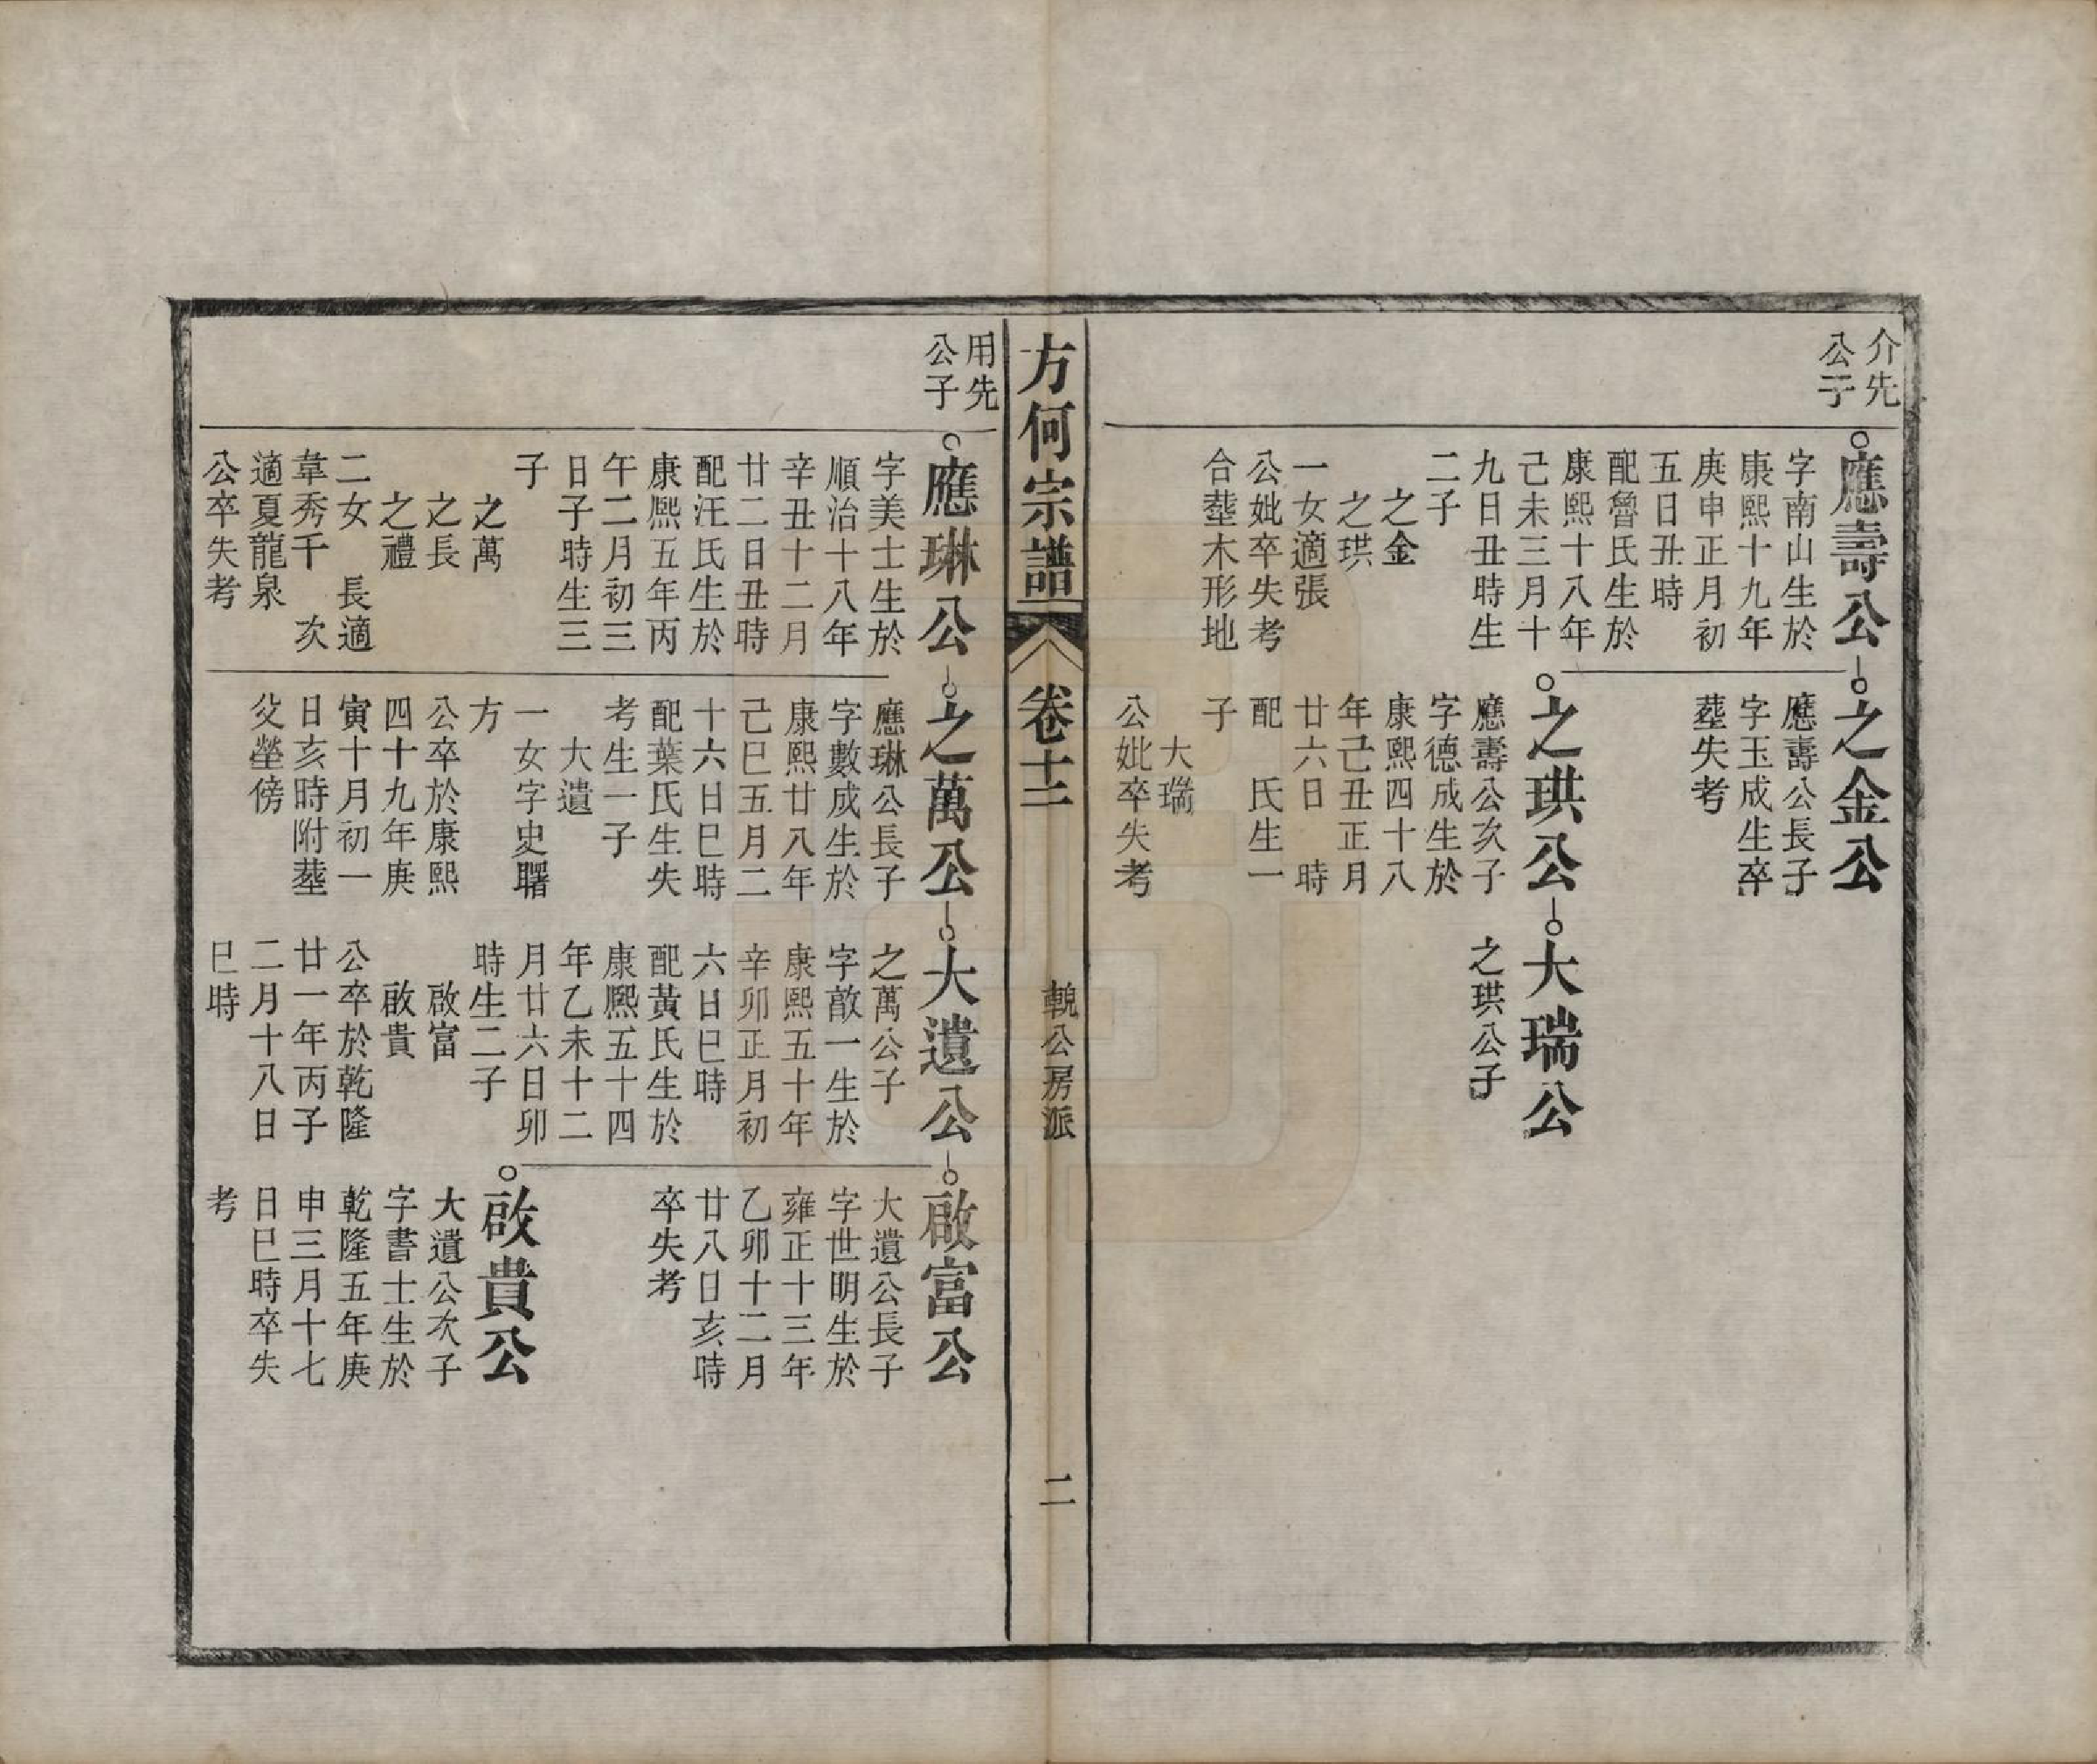 介先
公子
應壽公
字南山生於
康熙十九年
庚申正月初
五日丑時
配魯氏生於
康熙十八年
己未三月十
九日丑時生
二子
之金
之珙
一女適張
公妣卒失考
合塟木形地
之金公
應壽公長子
字玉成生卒
塟失考
之珙公
應壽公次子
字德成生於
康熙四十八
年己丑正月
廿六日　時
配　氏生一
子
大瑞
公妣卒失考
大瑞公
之珙公子
方何宗譜
卷十二
輗公房派
二
用先
公子
應琳公
字美士生於
順治十八年
辛丑十二月
廿二日丑時
配汪氏生於
康熙五年丙
午二月初三
日子時生三
子
之萬
之長
之禮
二女　長適
韋秀千　次
適夏龍泉
公卒失考
之萬公
應琳公長子
字數成生於
康熙廿八年
己巳五月二
十六日巳時
配葉氏生失
考生一子
大遺
一女字史曙
方
公卒於康熙
四十九年庚
寅十月初一
日亥時附塟
父塋傍
大遺公
之萬公子
字敵一生於
康熙五十年
辛卯正月初
六日巳時
配黃氏生於
康熙五十四
年乙未十二
月廿六日卯
時生二子
啟富
啟貴
公卒於乾隆
廿一年丙子
二月十八日
巳時
啟富公
大遺公長子
字世明生於
雍正十三年
乙卯十二月
廿八日亥時
卒失考
啟貴公
大遺公次子
字書士生於
乾隆五年庚
申三月十七
日巳時卒失
考